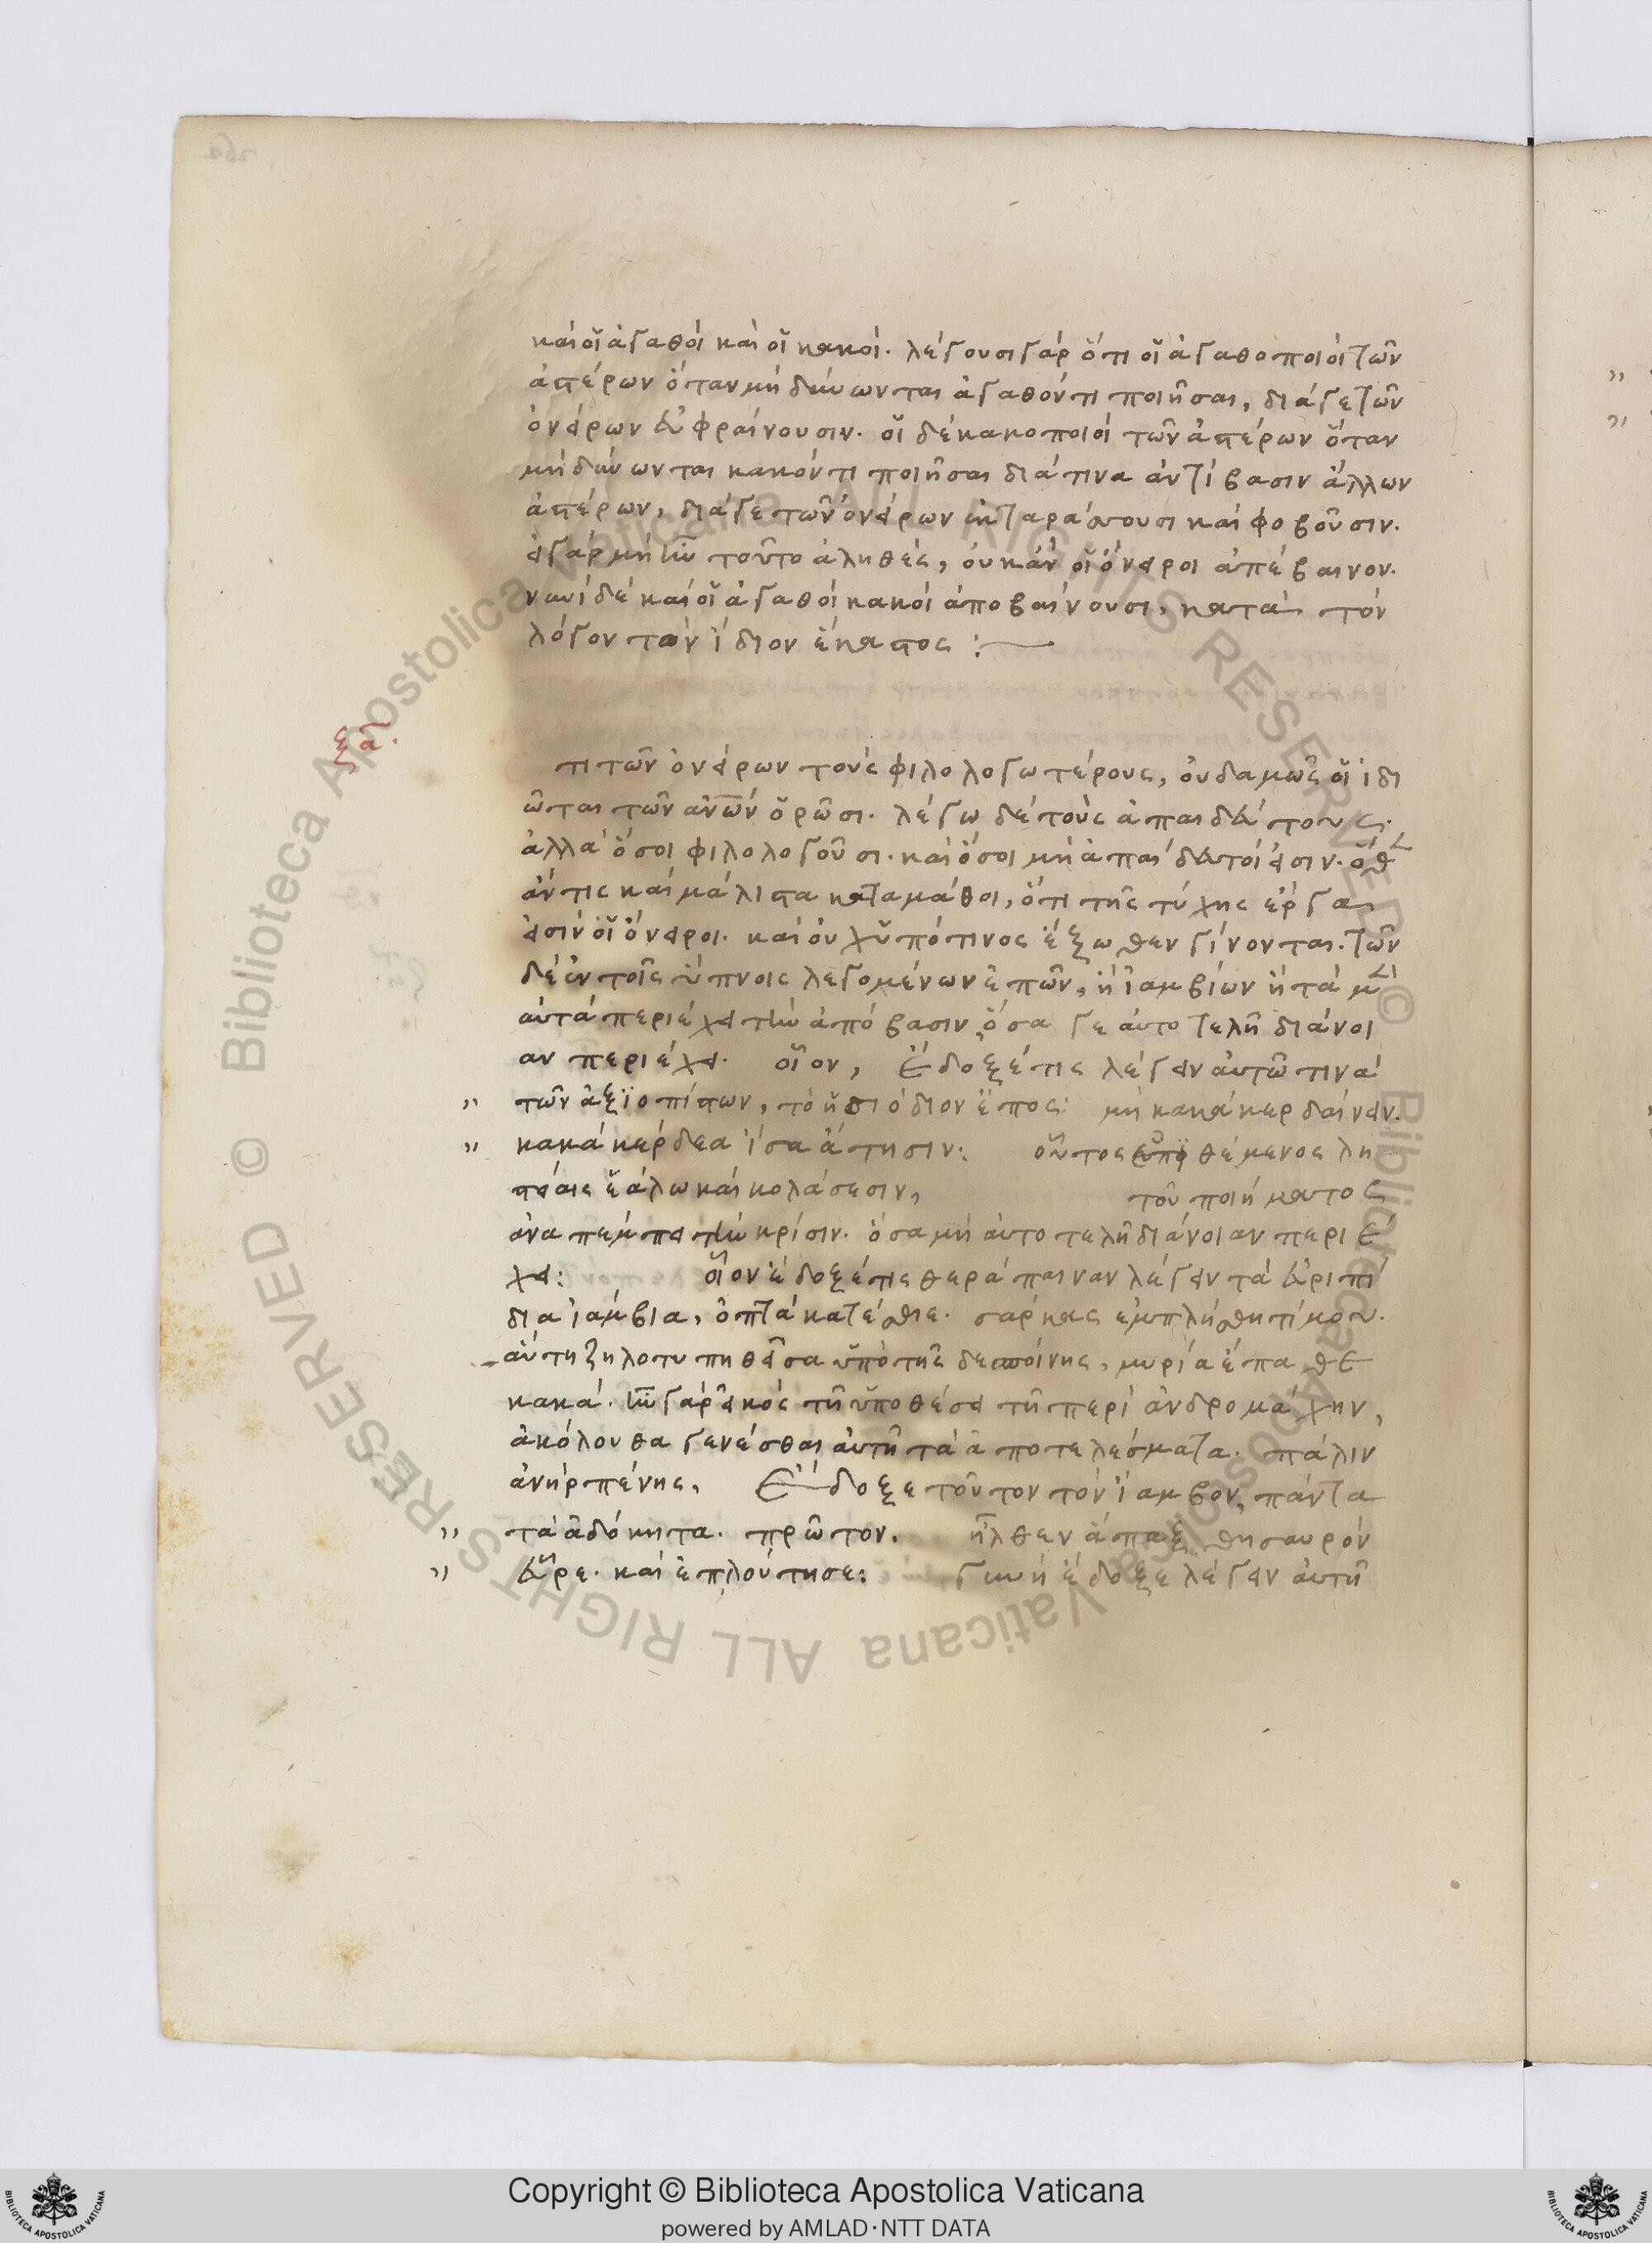 καὶ οἱ ἀγαθοὶ καὶ οἱ κακοί. λέγουσι γὰρ ὅτι οἱ ἀγαθοποιοὶ τῶν
ἀστέρων ὅταν μὴ δύνωνται ἀγαθόν τι ποιῆσαι, διά γε τῶν
ὀνείρων εὐφραίνουσιν. οἱ δὲ κακοποιοὶ τῶν ἀστέρων ὅταν
μὴ δύνωνται κακόν τι ποιῆσαι διά τινα ἀντίβασιν ἄλλων
ἀστέρων, διά γε τῶν ὀνείρων ἐκταράσσουσι καὶ φοβοῦσιν.
εἰ γὰρ μὴ ἦν τοῦτο ἀληθὲς, οὐκ ἂν οἱ ὄνειροι ἀπέβαινον.
νυνὶ δὲ καὶ οἱ ἀγαθοὶ κακοὶ ἀποβαίνουσι, κατὰ τὸν
λόγον τὸν ἴδιον ἕκαστος :
ξα.
τι τῶν ὀνείρων τοὺς φιλολογωτέρους, οὐδαμῶς οἱ ἰδι
ῶται τῶν ἀνων ὁρῶσι. λέγω δὲ τοὺς ἀπαιδεύτους.
ἀλλὰ ὅσοι φιλολογοῦσι. καὶ ὅσοι μὴ ἀπαίδευτοί εἰσιν. ὅθ
ἄν τις καὶ μάλιστα καταμάθοι, ὅτι τῆς τύχης ἔργα
εἰσὶν οἱ ὄνειροι. καὶ οὐχ ὑπό τινος ἔξωθεν γίνονται. τῶν
δὲ ἐν τοῖς ὕπνοις λεγομένων ἐπῶν, ἢ ἰαμβίων ἢ τὰ μ
αὐτὰ περιέχει τὴν ἀπόβασιν, ὅσα γε αὐτοτελῆ διάνοι
αν περιέχει. οἷον, Ἔδοξέ τις λέγειν αὐτῷ τινὰ
" τῶν ἀξιοπίστων, τὸ ἡσιόδιον ἔπος: μὴ κακὰ κερδαίνειν.
" κακὰ κέρδεα ἶσα ἄτησιν: οὗτος ὑποθέμενος λη
στείαις ἑάλω καὶ κολάσεσιν, τοῦ ποιήματος
ἀναπέμπει τὴν κρίσιν. ὅσα μὴ αὐτοτελῆ διάνοιαν περιέ
χει: οἷον ἔδοξέ τις θεράπαιναν λέγειν τὰ εὐριπί
δια ἰάμβια, ὀπτὰ κατέσθιε. σάρκας ἐμπλήσθητί μου.
αὕτη ζηλοτυπηθεῖσα ὑπὸ τῆς δεσποίνης, μυρία ἔπαθε
κακά. ἦν γὰρ εἰκὸς τῇ ὑποθέσει τῇ περὶ ἀνδρομάχην,
ἀκόλουθα γενέσθαι αὐτῇ τὰ ἀποτελέσματα. πάλιν
ἀνὴρ πένης, Ἔδοξε τοῦτον τὸν ἴαμβον, πάντα
" τὰ ἀδόκητα. πρῶτον. ἦλθεν ἅπαξ, θησαυρὸν
" εὗρε. καὶ ἐπλούτησε: γυνὴ ἔδοξε λέγειν αὐτῇ
Copyright © Biblioteca Apostolica Vaticana
powered by AMLAD·NTT DATA